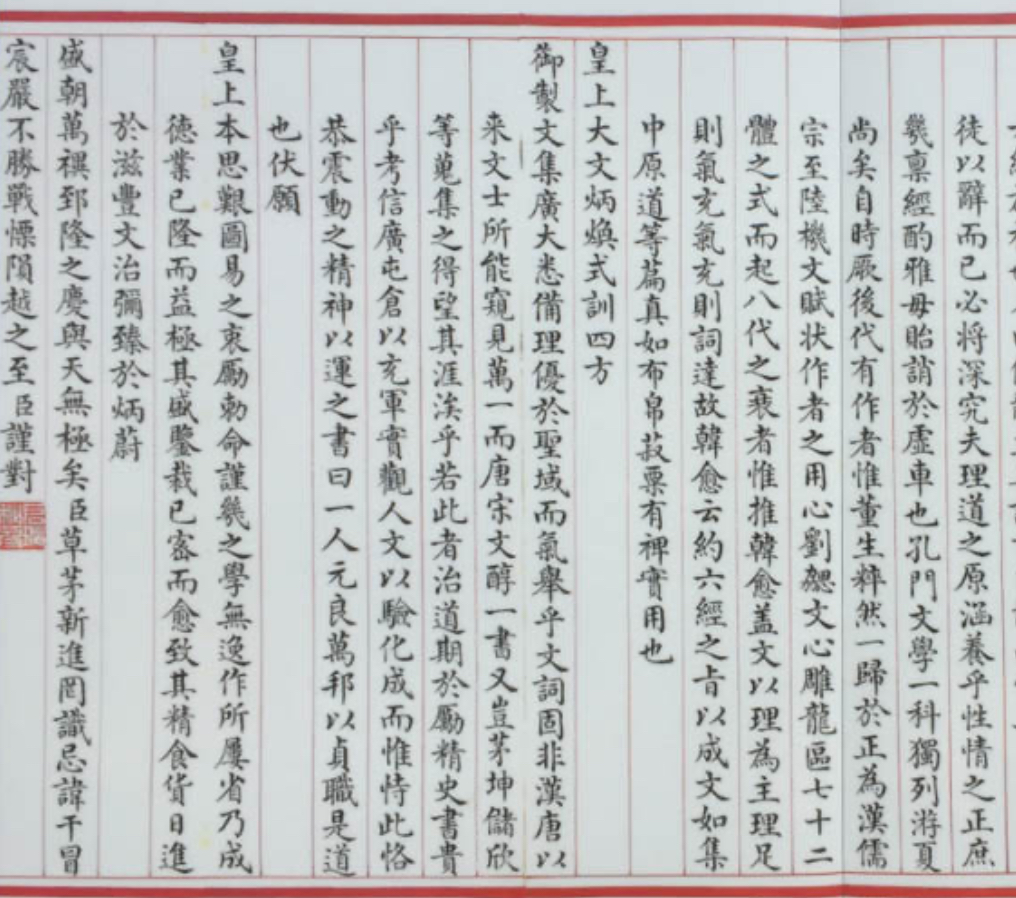 徒以辭而已必將深究夫理道之原涵養乎性情之正庶
幾稟經酌雅毋貽誚於虛車也孔門文學一科獨列游夏
尚矣自時厥後代有作者惟董生粹然一歸於正為漢儒
宗至陸機文賦狀作者之用心劉勰文心雕龍區七十二
體之式而起八代之衰者惟推韓愈盖文以理為主理足
則氣充氣充則詞達故韓愈云約六經之旨以成文如集
中原道等篇真如布帛菽粟有裨實用也
皇上大文炳煥式訓四方
御製文集廣大悉備理優於聖域而氣舉乎文詞固非漢唐以
来文士所能窺見萬一而唐宋文醇一書又豈茅坤儲欣
等蒐集之得望其涯涘乎若此者治道期於勵精史書貴
乎考信廣屯倉以充軍實觀人文以驗化成而惟恃此恪
恭震動之精神以運之書曰一人元良萬邦以貞職是道
也伏願
皇上本思艱圖易之衷勵勅命謹幾之學無逸作所屢省乃成
德業已隆而益極其盛鑒裁已密而愈致其精食貨日進
於滋豐文治彌臻於炳蔚
盛朝萬禩郅隆之慶與天無極矣臣草茅新進罔識忌諱干冒
宸嚴不勝戰慄隕越之至臣謹對